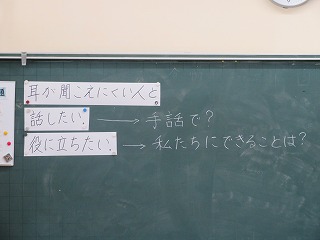 耳が聞こえにくい人と
話したい。 → 手話で?
役に立ちたい。 → 私たちにできることは?